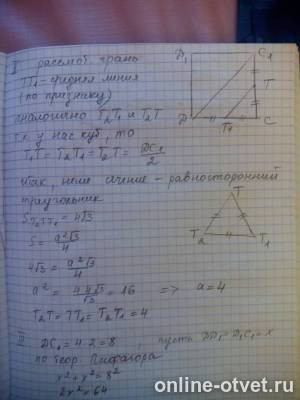 II рассмот. грань
TT₁ - средняя линия
(по признаку)
аналогично T₂T₁ и T₂T
т.к у нас куб, то
T₁T = T₂T₁ = T₂T = DC₁/2
итак, наше сечение - равносторонний
треугольник
S T₂TT₁ = 4√3
S = a²√3/4
4√3 = a²√3/4
a² = 4·4√3/√3 = 16 => a = 4
T₂T = TT₁ = T₂T₁ = 4
III DC₁ = 4·2 = 8, пусть DD₁ = D₁C₁ = x
по теор. Пифагора
x² + x² = 8²
2x² = 64
D₁ C₁
T
D T₁ C
T
T₂ T₁
online-otvet.ru